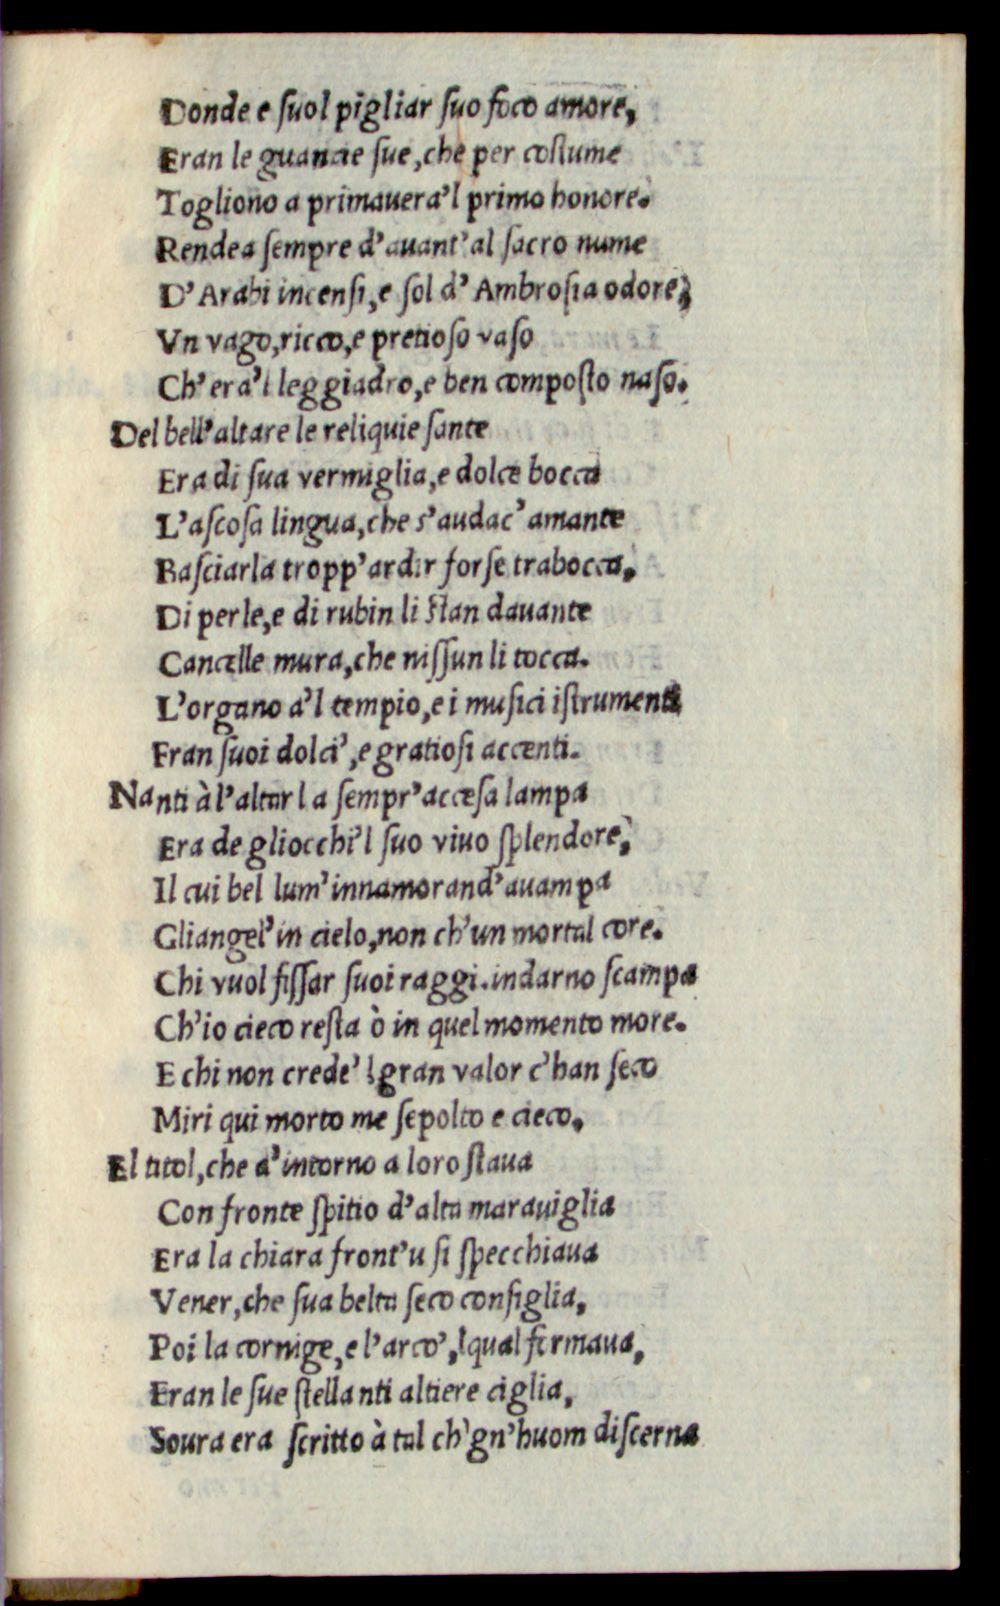 Donde e ſuol pigliar ſuo foco amore,
Eran le guancie ſue, che per coſtume
Togliono a primauera'l primo honore.
Rendea ſempre d'auant'al ſacro nume
D'Arabi incenſi, e ſol d'Ambroſia odore,
Vn vago, ricco, e pretioſo vaſo
Ch'era'l leggiadro, e ben compoſto naſo.
Del bell'altare le reliquie ſante
Era di ſua vermiglia, e dolce bocca
L'aſcoſa lingua, che s'audac'amante
Baſciarla tropp'ardir forſe trabocca,
Di perle, e di rubin li ſtan dauante
Cancelle mura, che niſſun li tocca.
L'organo a'l tempio, e i muſici iſtrumenti
Eran ſuoi dolci', e gratioſi accenti.
Nanti à l'altar la ſempr'acceſa lampa
Era de gliocchi'l ſuo viuo ſplendore,
Il cui bel lum'innamorand'auampa
Gliangel'in cielo, non ch'un mortal core.
Chi vuol fiſſar ſuoi raggi.indarno ſcampa
Ch'io cieco reſta ò in quel momento more.
E chi non crede'l gran valor c'han ſeco
Miri qui morto me ſepolto e cieco,
El titol, che d'intorno a loro ſtaua
Con fronte ſpitio d'alta marauiglia
Era la chiara front'u ſi ſpecchiaua
Vener, che ſua belta ſeco configlia,
Poi la cornige, e l'arco', lqual fermaua,
Eran le ſue ſtellanti altiere ciglia,
Soura era ſcritto à tal ch'gn'huom diſcerna